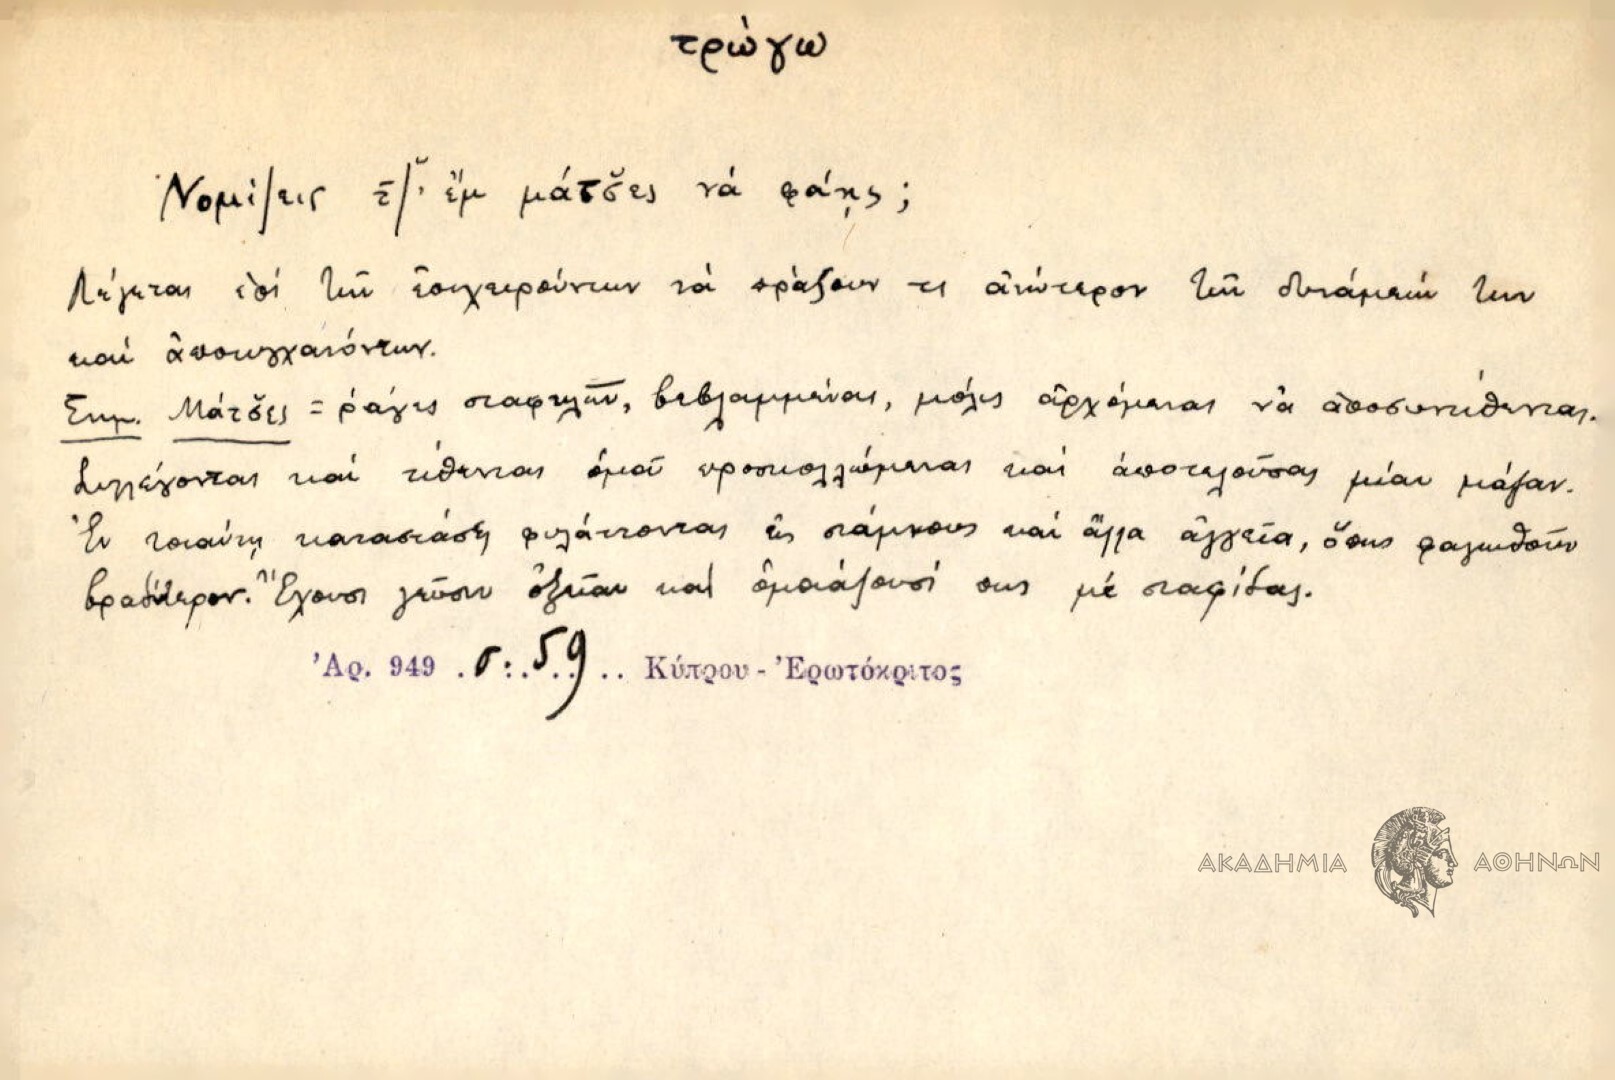 τρώγω
Νομίζεις τζ̌' ἔμ μάτσ̆ες νά φάῃς;
Λέγεται ἐπί τῶν ἐπιχειρούντων νά πράξουν τι ἀνώτερον τῶν δυνάμεών των
καί ἀποτυγχανόντων.
Σημ. Μάτσ̆ες = ράγες σταφυλῶν, βεβλαμμέναι, μόλις ἀρχόμεναι νά ἀποσυντίθενται.
Συλλέγονται καί τίθενται ὁμοῦ προσκολλώμεναι καί ἀποτελοῦσαι μίαν μάζαν.
Ἐν τοιαύτῃ καταστάσει φυλάττονται εἰς στάμνους καί ἄλλα ἀγγεῖα, ὅπως φαγωθοῦν
βραδύτερον. Ἔχουσι γεῦσιν ὀξεῖαν καί ὁμοιάζουσί πως μέ σταφίδας.
Ἀρ. 949 . σ: 59 .. Κύπρου - Ἐρωτόκριτος
ΑΚΑΔΗΜΙΑ ΑΘΗΝΩΝ